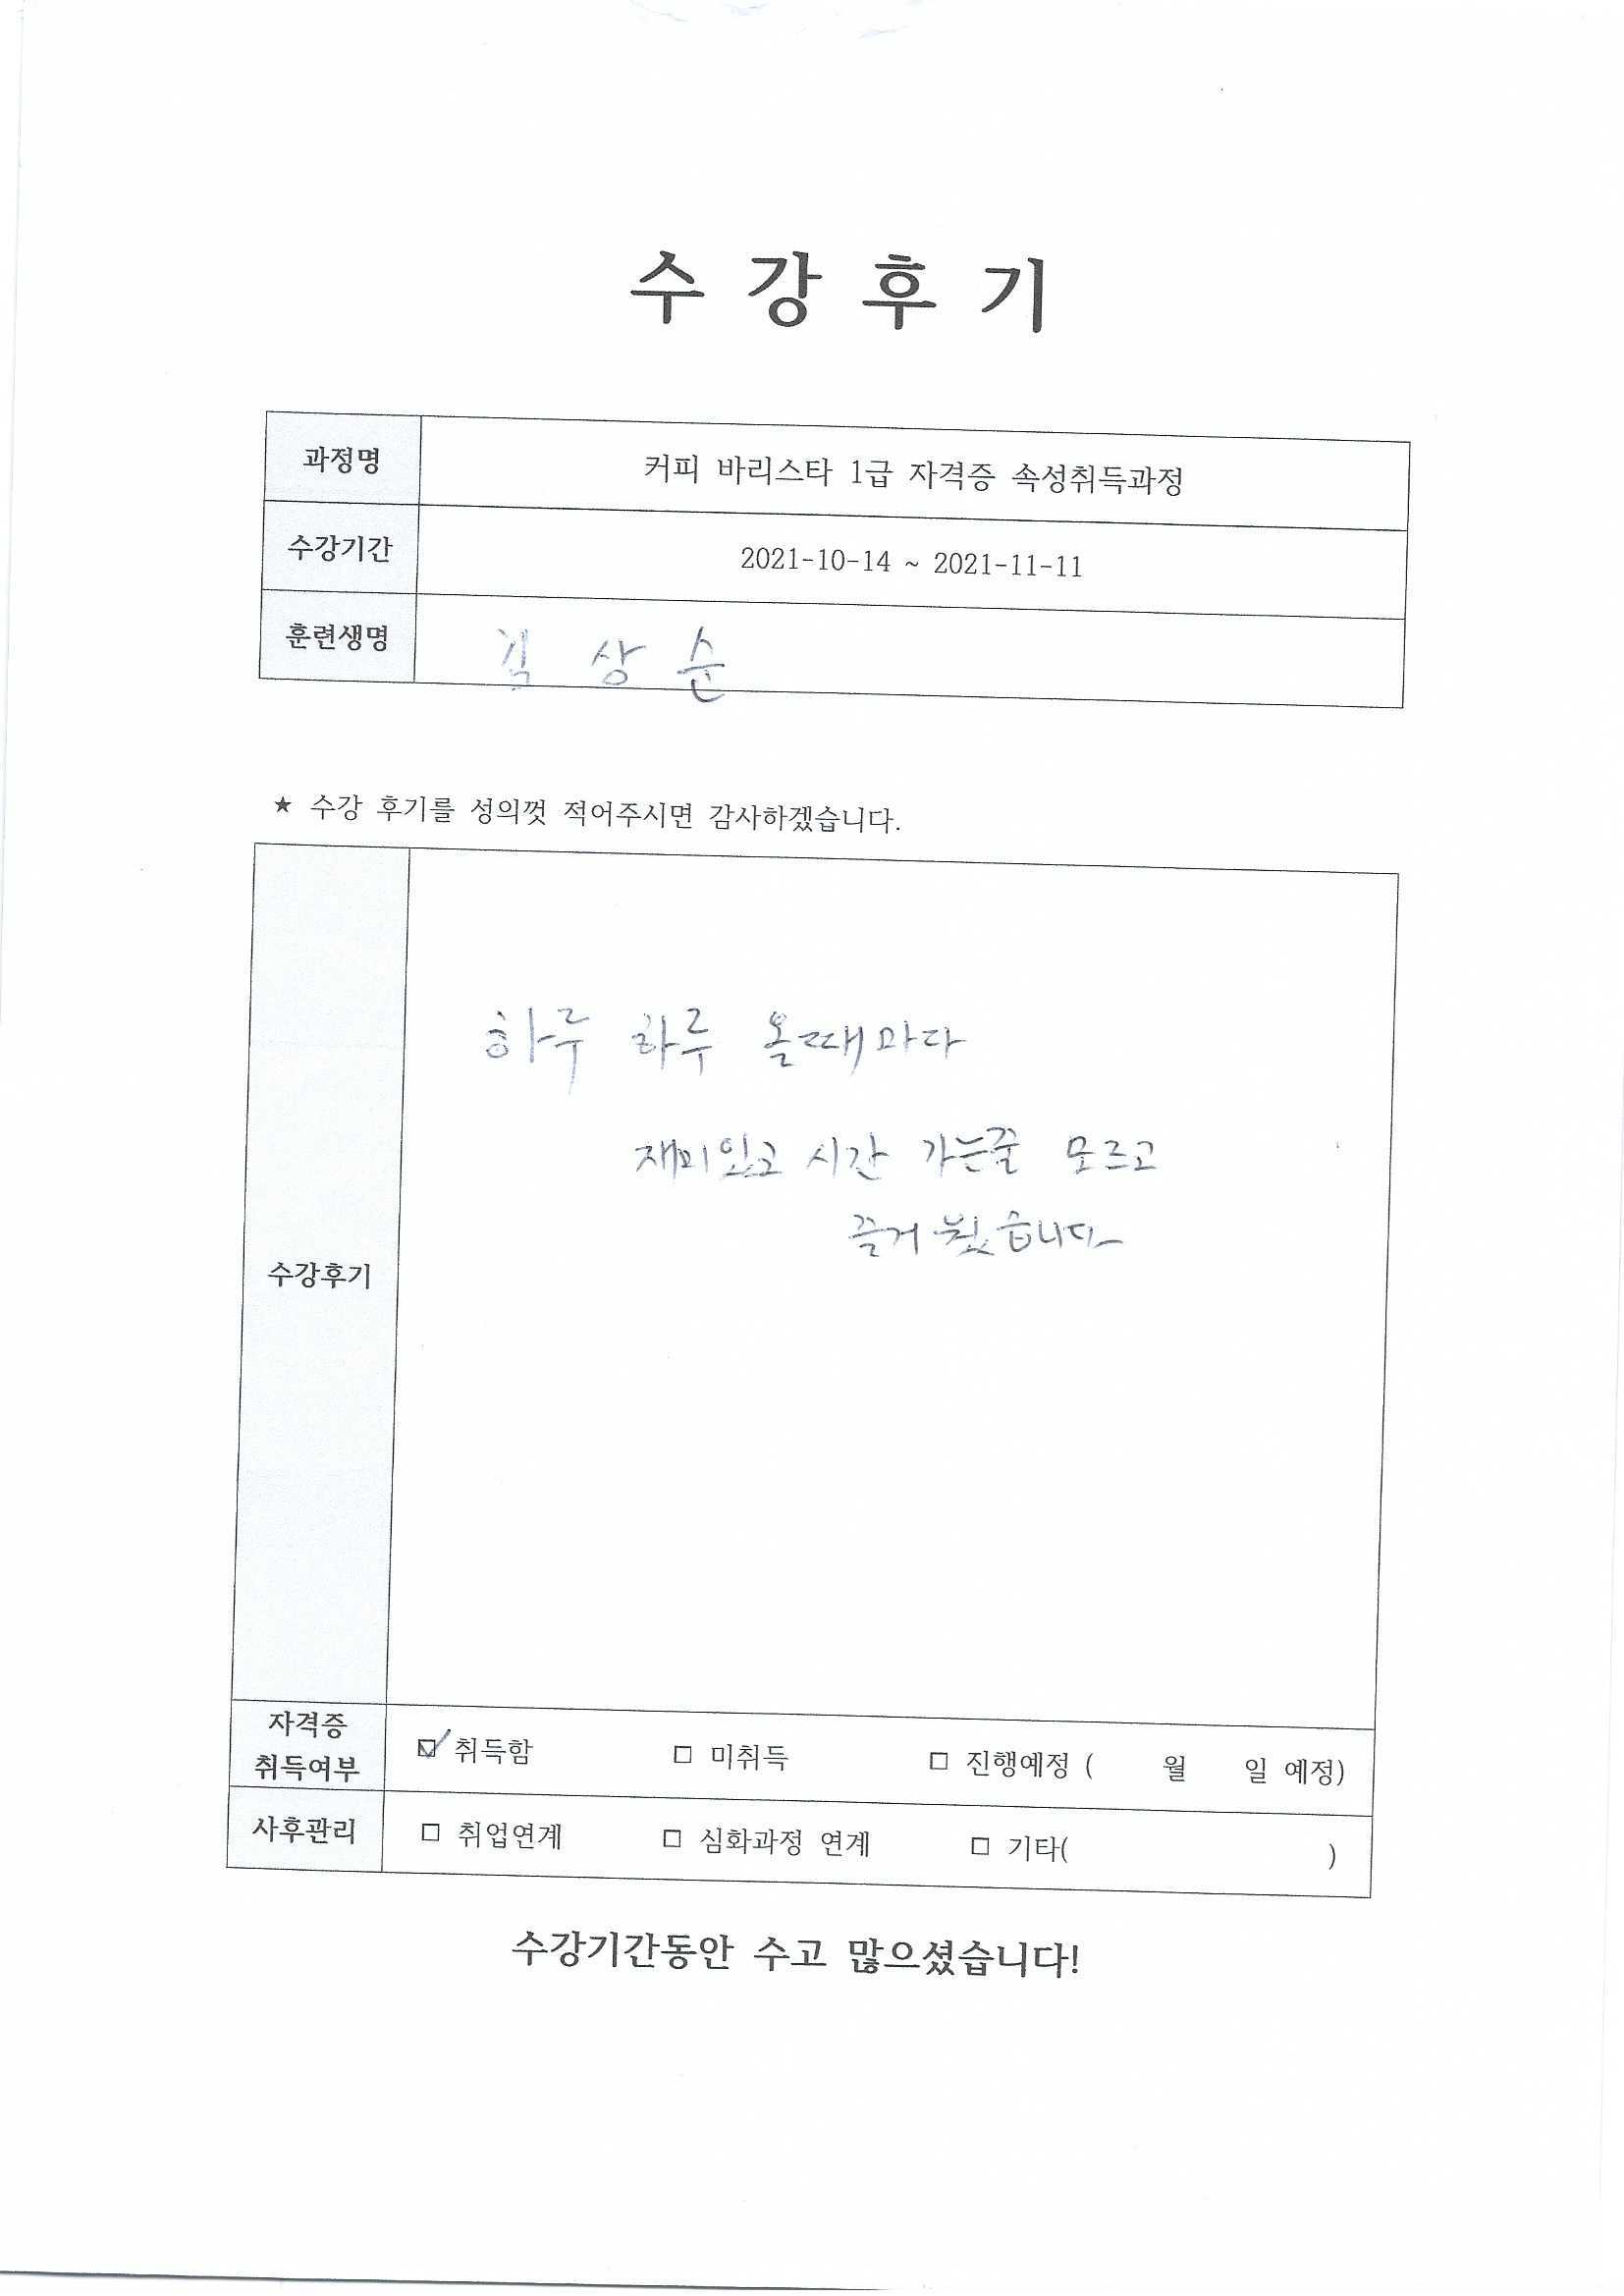 수 강 후 기
과정명 커피 바리스타 1급 자격증 속성취득과정
수강기간 2021-10-14 ~ 2021-11-11
훈련생명 김 상 순
★ 수강 후기를 성의껏 적어주시면 감사하겠습니다.
하루 하루 올때마다
재미있고 시간 가는줄 모르고
수강후기
자격증
취득여부 ☑ 취득함 □ 미취득 □ 진행예정 ( 월 일 예정)
사후관리 □ 취업연계 □ 심화과정 연계 □ 기타( )
수강기간동안 수고 많으셨습니다!